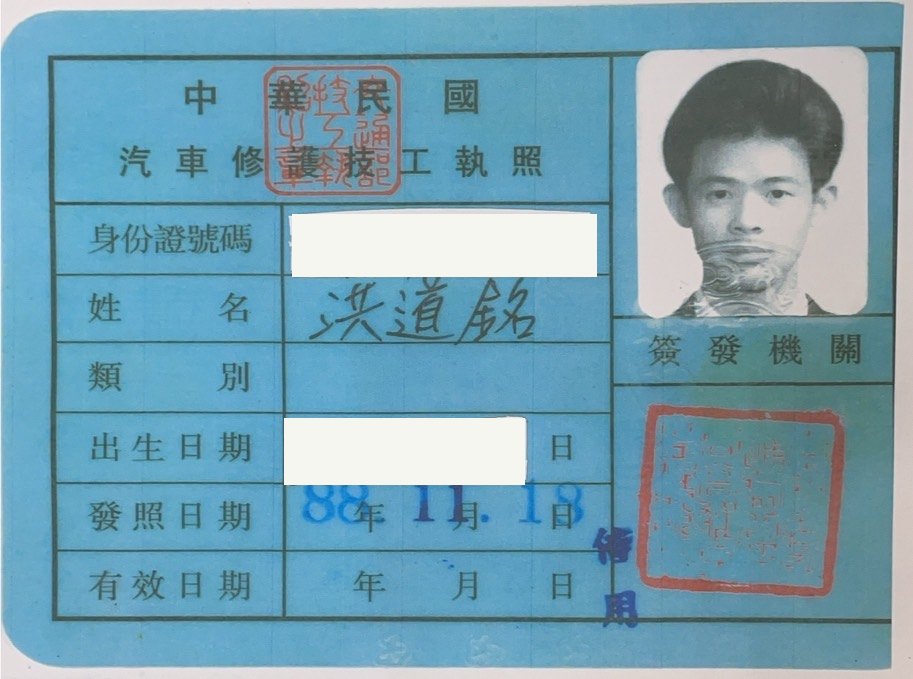 中華民國
汽車修護技工執照
身份證號碼
姓名 洪道銘
類別
出生日期 日
發照日期 88年11月18日
有效日期 年 月 日
簽發機關
備用